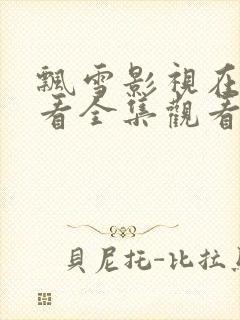 飄雪影視在
看全集觀看
貝尼托-比拉